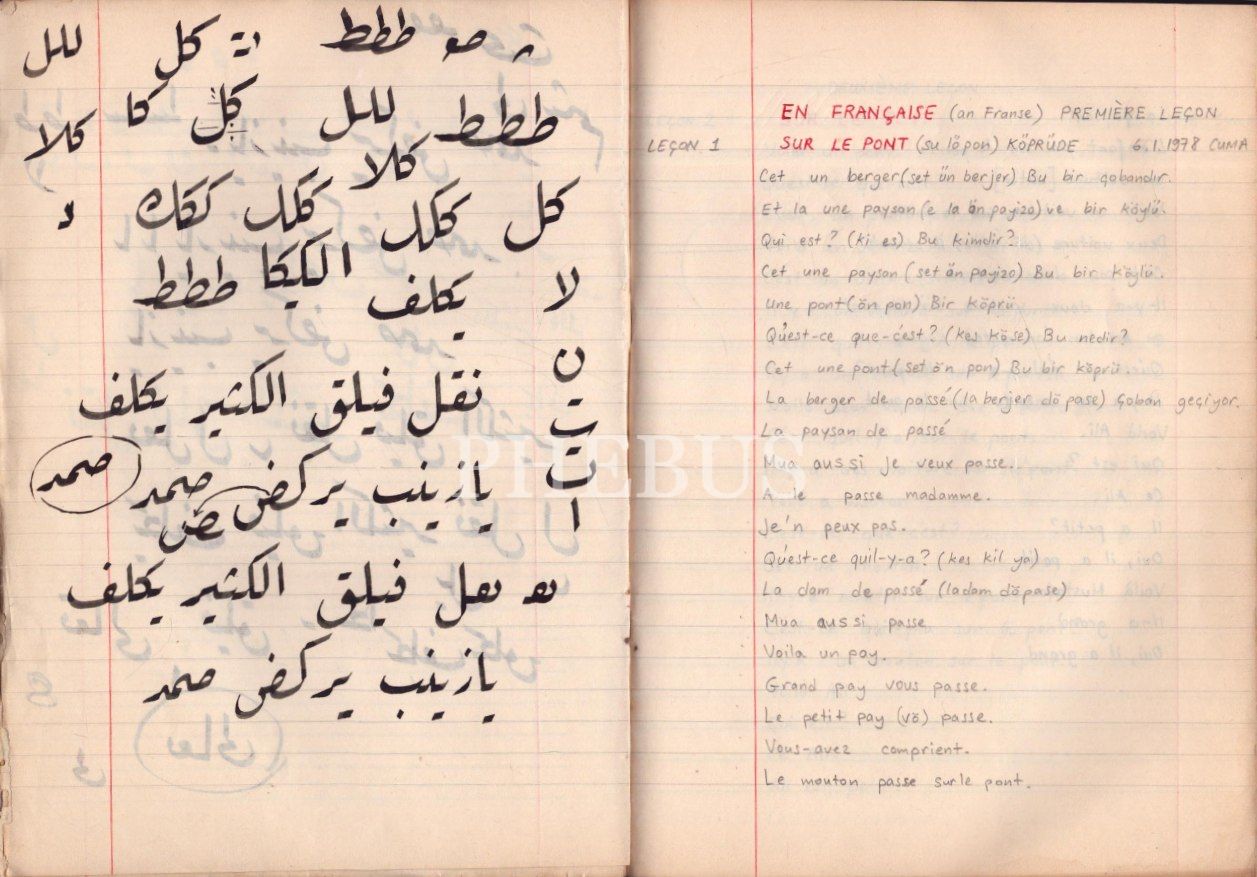 ططط صو ر
لل كل
ططط لل كل كا كلا
كلا
كل ككل ككل ككك د
لا يكلف الكيكا ططط
ن
نقل فيلق الكثير يكلف
ت
ث
يازينب يركض صمد صمد
ا
ض
هو نعل فيلق الكثير يكلف
يازينب يركض صمد
PHEBUS
EN FRANÇAISE (an Franse) PREMIÈRE LEÇON
LEÇON 1 SUR LE PONT (su lö pon) KÖPRÜDE 6.1.1978 CUMA
Cet un berger (set ön berjer) Bu bir çobandır.
Et la une payson (e la ön payizo) ve bir köylü.
Qui est? (ki es) Bu kimdir?
Cet une payson (set ön payizo) Bu bir köylü.
Une pont (ön pon) Bir köprü
Qu'est-ce que-c'est? (kes köse) Bu nedir?
Cet une pont (set ön pon) Bu bir köprü.
La berger de passé (la berjer dö pase) Çoban geçiyor.
La paysan de passé
Mua aussi je veux passe.
A le passe madamme.
Je'n peux pas.
Qu'est-ce quil-y-a? (kes kil ya)
La dam de passé (la dam dö pase)
Mua aussi passe
Voila un pay.
Grand pay vous passe.
Le petit pay (vö) passe.
Vous-avez comprient.
Le mouton passe sur le pont.